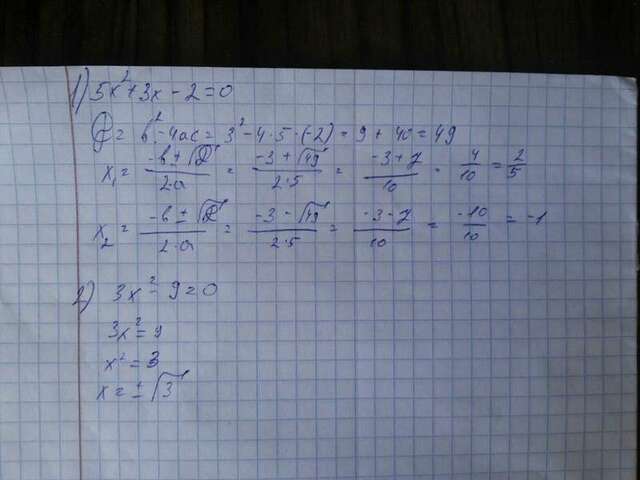 1) 5x²+3x-2=0
D= b²-4ac= 3²-4·5·(-2)=9+40=49
x₁= (-b±√D)/(2·a) = (-3+√49)/(2·5) = (-3+7)/10 = 4/10 = 2/5
x₂= (-b±√D)/(2·a) = (-3-√49)/(2·5) = (-3-7)/10 = -10/10 = -1
2) 3x²-9=0
3x²=9
x²=3
x=±√3